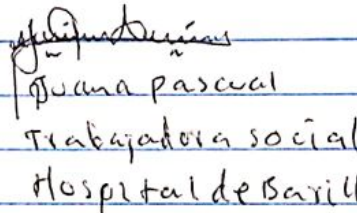 Juana pascual
Trabajadora social
Hospital de Barill